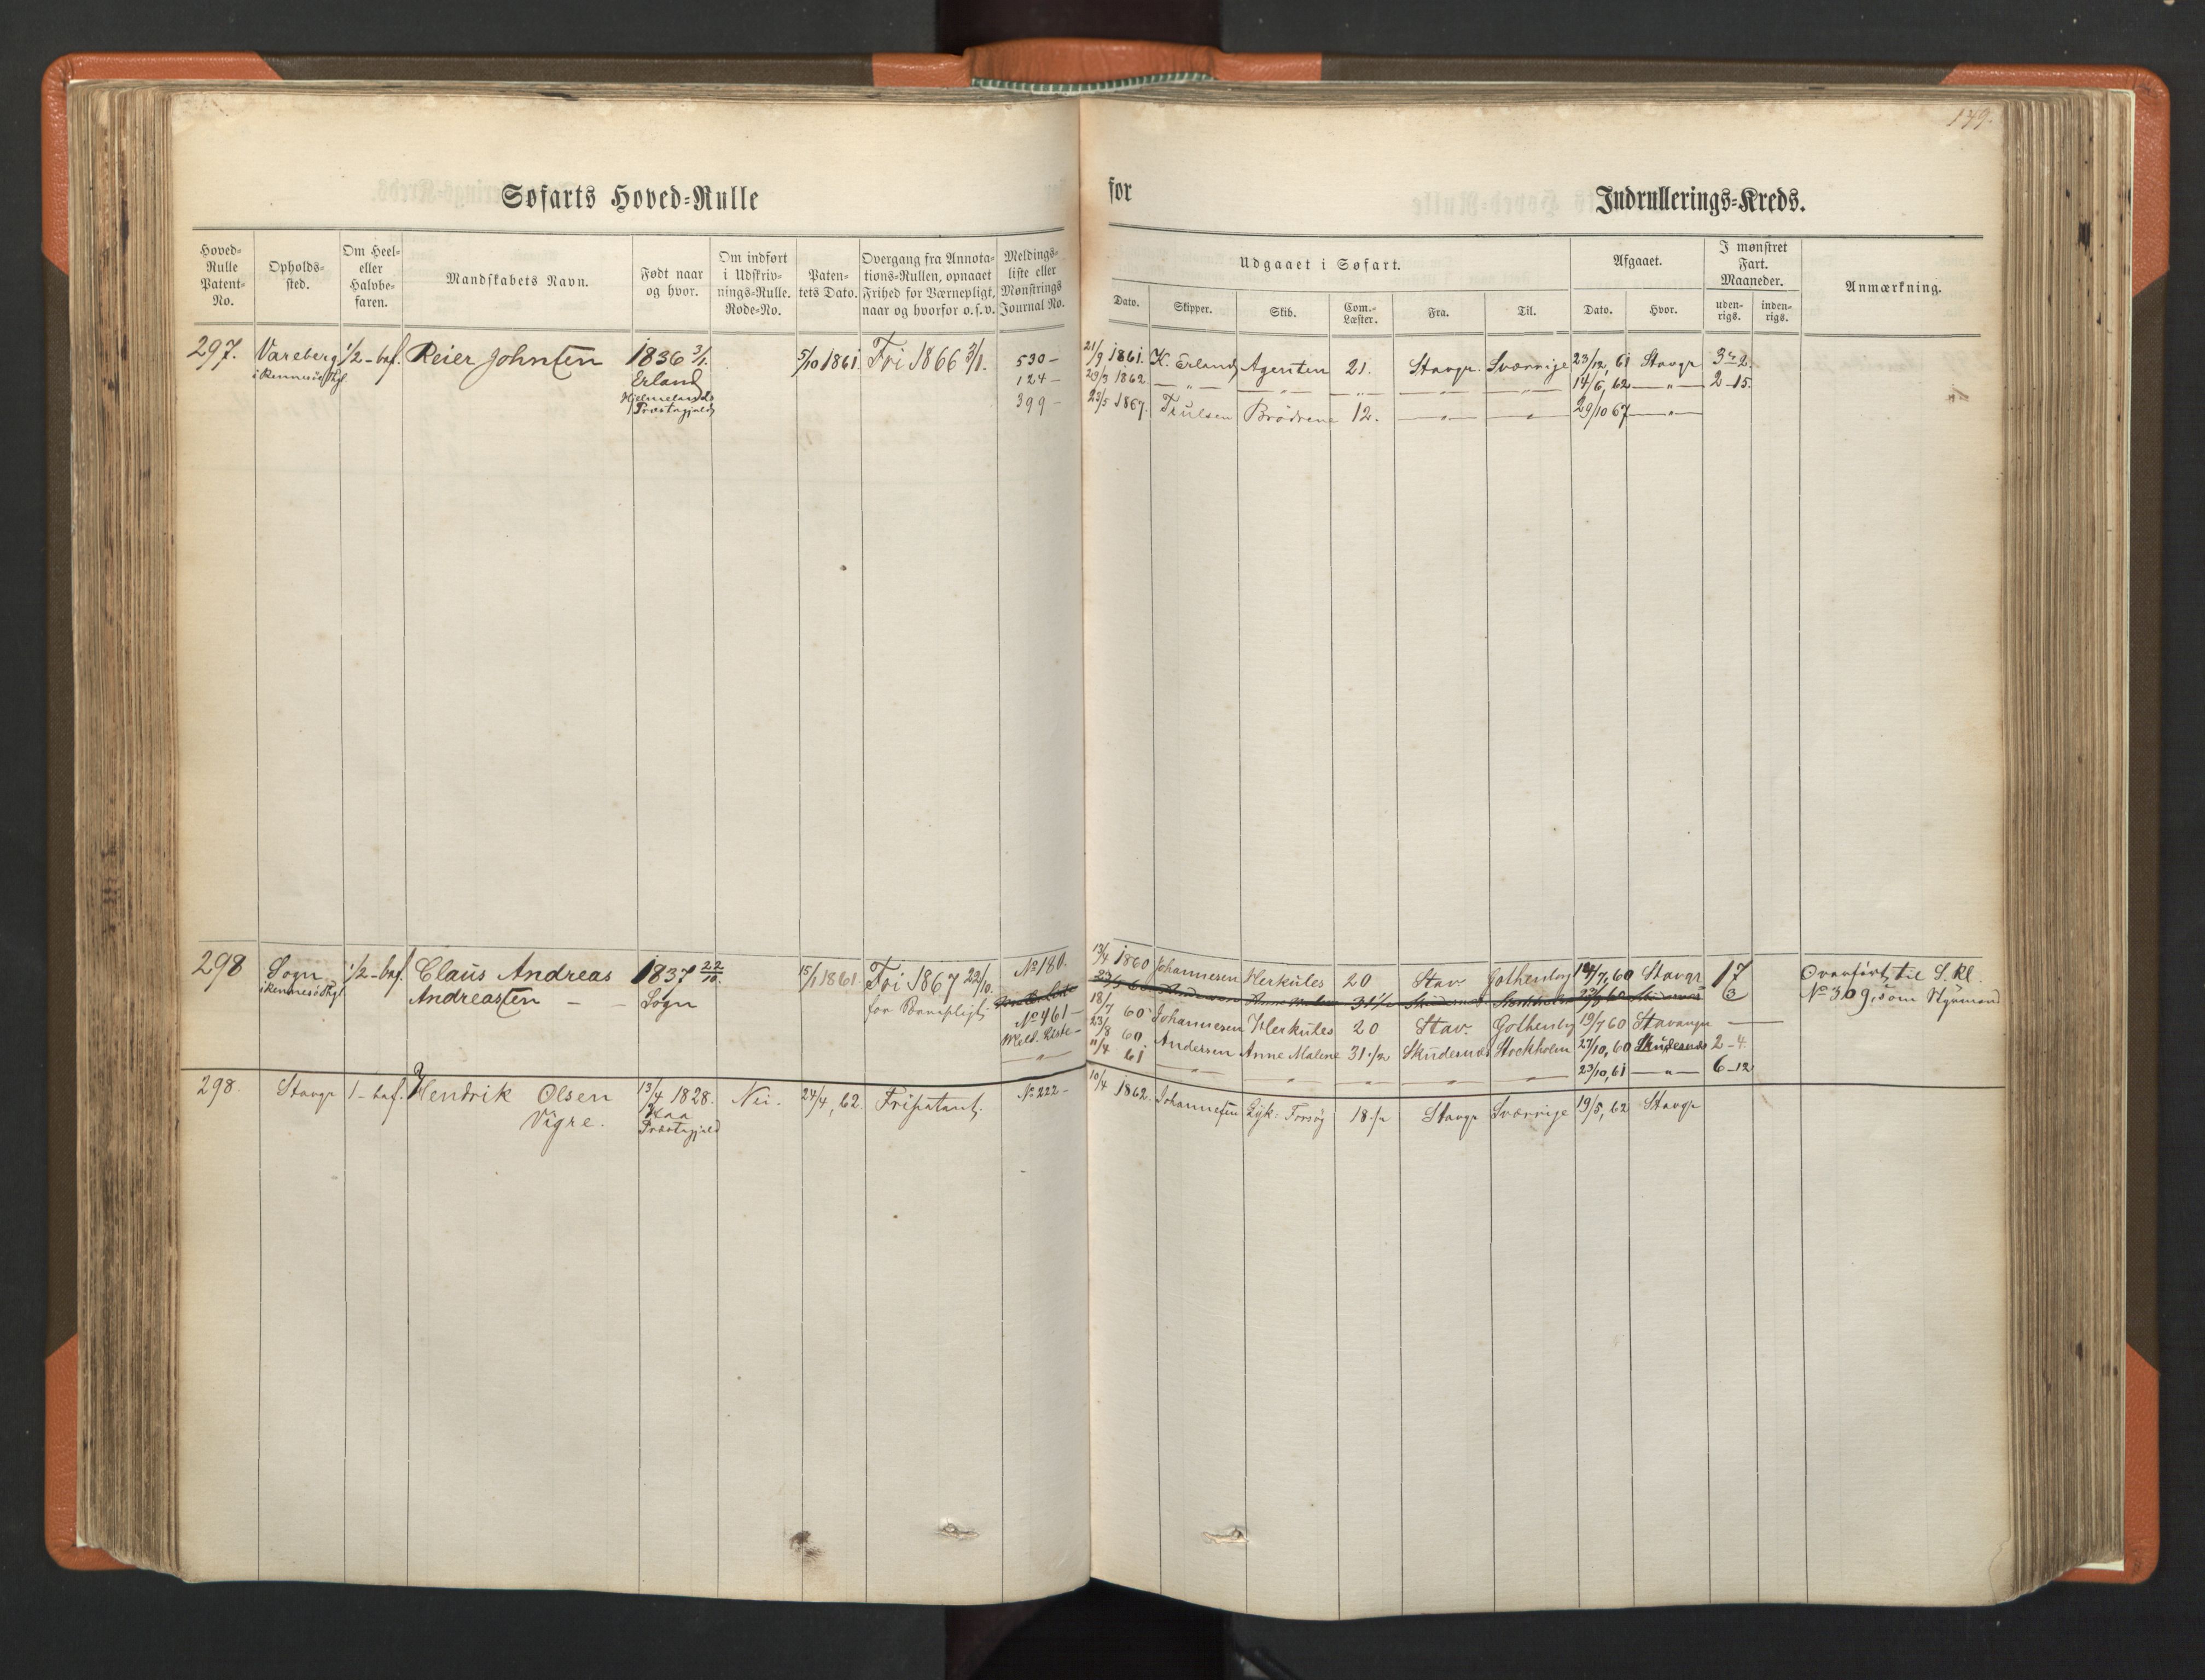 149.
Søfarts Hoved-Rulle
for
Indrullerings-Kreds.
Hoved-Rulle Patent-No.
Opholds-sted.
Om Heel- eller Halvbe-faren.
Mandskabets Navn.
Født naar og hvor.
Om indført i Udskriv-nings-Rulle. Rode-No.
Paten-tets Dato.
Overgang fra Annota-tions-Rullen, opnaaet Frihed for Værnepligt, naar og hvorfor o.s.v.
Meldings-liste eller Mønstrings Journal No.
Udgaaet i Søfart.
Dato.
Skipper.
Skib.
Com.-Læster.
Fra.
Til.
Afgaaet.
Dato.
Hvor.
I mønstret Fart. Maaneder.
uden-rigs.
inden-rigs.
Anmærkning.
297. Vareberg 1/2-baf. Reier Johnsen 1836 3/1. 5/10 1861. Fri 1866 3/1. 530- 21/9 1861. K. Erland Agenten 21. Stavgr. Sverrige 23/12, 61 Stavgr 3-2.
Erland 124- 23/3 1862. -"- -"- -"- -"- -"- 14/6, 62 -"- 2-15.
Hjelmelands Præstegjeld 399- 23/5 1867. Trulsen Brödrene 12. -"- -"- 29/10 67 -"-
298 Sogn 1/2-baf. Claus Andreas 1837 22/10. 15/1 1861 Fri 1867 22/10. No 180. 13/4 1860 Johannesen Herkules 20 Stav. Gothenbg 14/7, 60 Stavgr 17/3 Overført til S. Kl.
Andreassen - - Sogn for Værnepligt Anne Malene 31 1/2 No 309, som Styrmand
No 461- 18/7 60 Johannesen Herkules 20 Stav. Gothenbg 19/7 60 Stavanger -
Meld. Liste- 23/8 60. Andersen Anne Malene 31 1/2 Skudesnæs Stockholm 27/10, 60 Skudesnæs 2-4.
-"- 11/4 61 -"- -"- -"- -"- -"- 23/10, 61 -"- 6-12
298. Stavgr 1-baf. Hendrik Olsen 13/4 1828. Nei. 24/4, 62. Fripatent. No 222- 10/4 1862. Johannesen Lyk: Forsøg 18 1/2 Stavgr Sverrige 19/5, 62 Stavgr
Vigre. Haa Præstegjeld